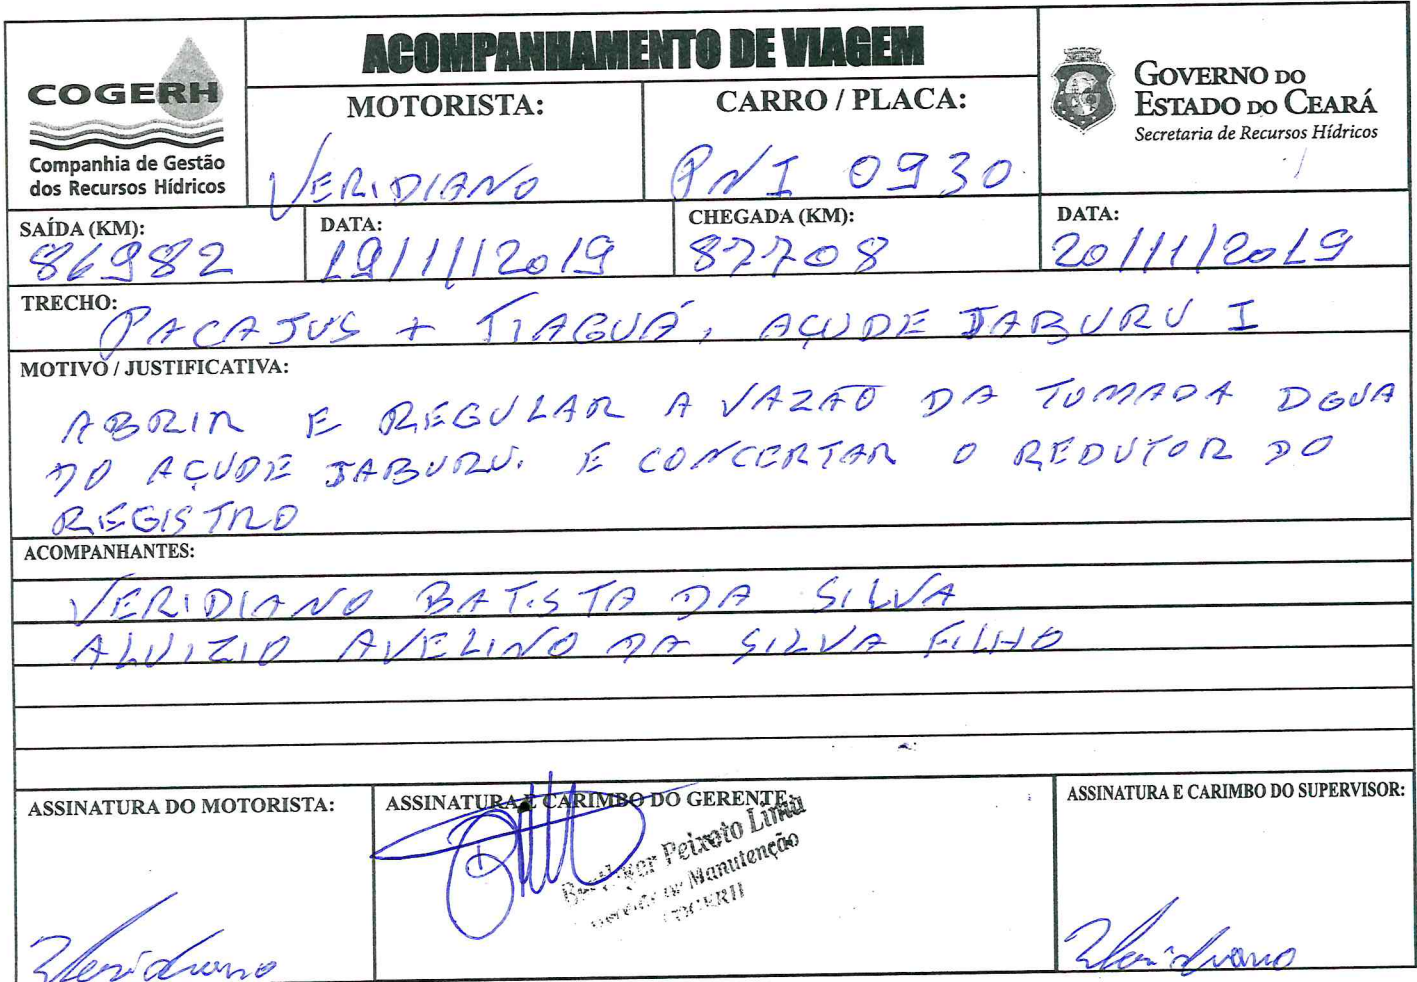 ACOMPANHAMENTO DE VIAGEM
COGERH
Companhia de Gestão
dos Recursos Hídricos
MOTORISTA:
VERIDIANO
CARRO / PLACA:
PNI 0930
GOVERNO DO
ESTADO DO CEARÁ
Secretaria de Recursos Hídricos
SAÍDA (KM):
86982
DATA:
19/11/2019
CHEGADA (KM):
87708
DATA:
20/11/2019
TRECHO:
PACAJUS + TIAGUÁ, AÇUDE JABURU I
MOTIVO / JUSTIFICATIVA:
ABRIR E REGULAR A VAZÃO DA TOMADA DGUA
DO AÇUDE JABURU. E CONCERTAR O REDUTOR DO
REGISTRO
ACOMPANHANTES:
VERIDIANO BATISTA DA SILVA
ALUIZIO AVELINO DA SILVA FILHO
ASSINATURA DO MOTORISTA:
Veridiano
ASSINATURA E CARIMBO DO GERENTE:
Peixoto Lima
Manutenção
COGERH
ASSINATURA E CARIMBO DO SUPERVISOR:
Veridiano